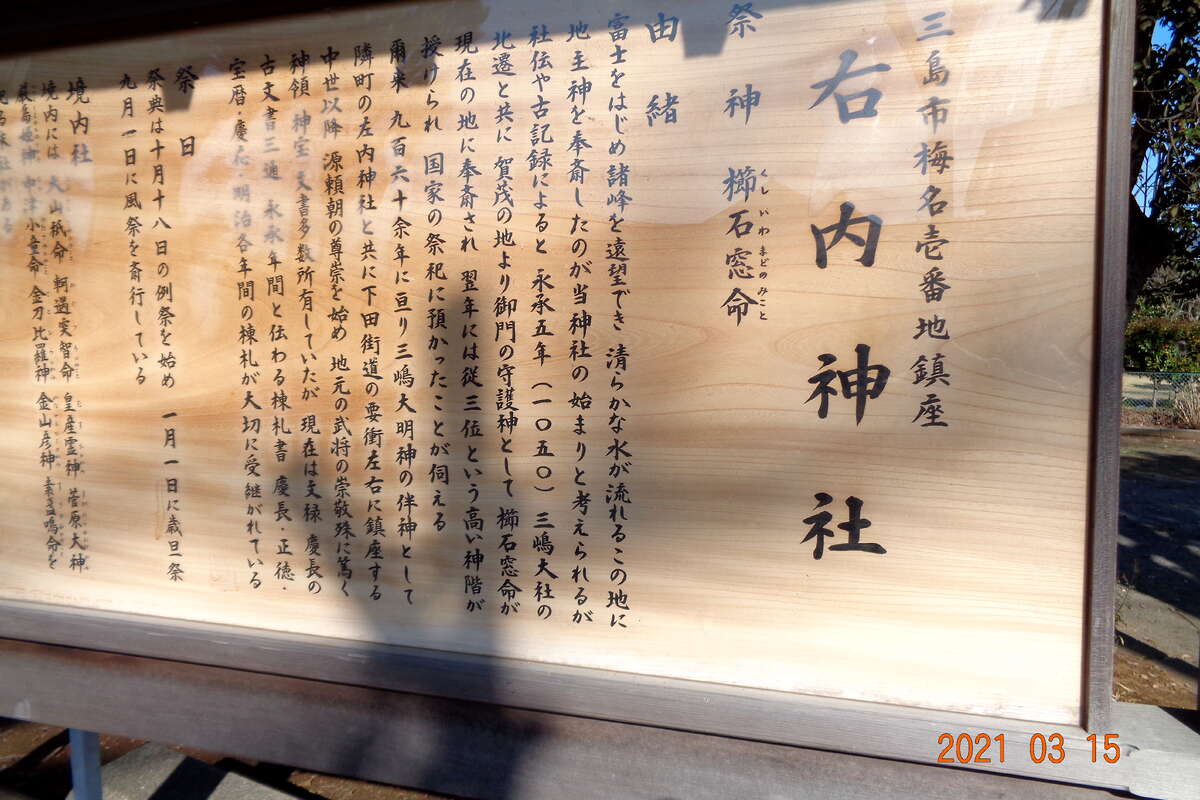 三島市梅名壱番地鎮座
右内神社
祭神 櫛石窓命
くしいわまどのみこと
由緒
富士をはじめ 諸峰を遠望でき 清らかな水が流れるこの地に
地主神を奉斎したのが当神社の始まりと考えられるが
社伝や古記録によると 永承五年(一〇五〇)三嶋大社の
北遷と共に 賀茂の地より御門の守護神として 櫛石窓命が
現在の地に奉斎され 翌年には従三位という高い神階が
授けられ 国家の祭祀に預かったことが伺える
爾来 九百六十余年に亘り三嶋大明神の伴神として
隣町の左内神社と共に下田街道の要衝左右に鎮座する
中世以降 源頼朝の尊崇を始め 地元の武将の崇敬殊に篤く
神領 神宝 文書多数所有していたが 現在は文禄 慶長の
古文書三通 永承年間と伝わる棟札書 慶長・正徳・
宝暦・慶応・明治各年間の棟札が大切に受継がれている
祭日
祭典は十月十八日の例祭を始め 一月一日に歳旦祭
九月一日に風祭を斎行している
境内社
境内には 大山祇命 軻遇突智命 皇産霊神 菅原大神
厳島姫神 中津少童命 金刀比羅神 金山彦神 素盞嗚命を
2021 03 15